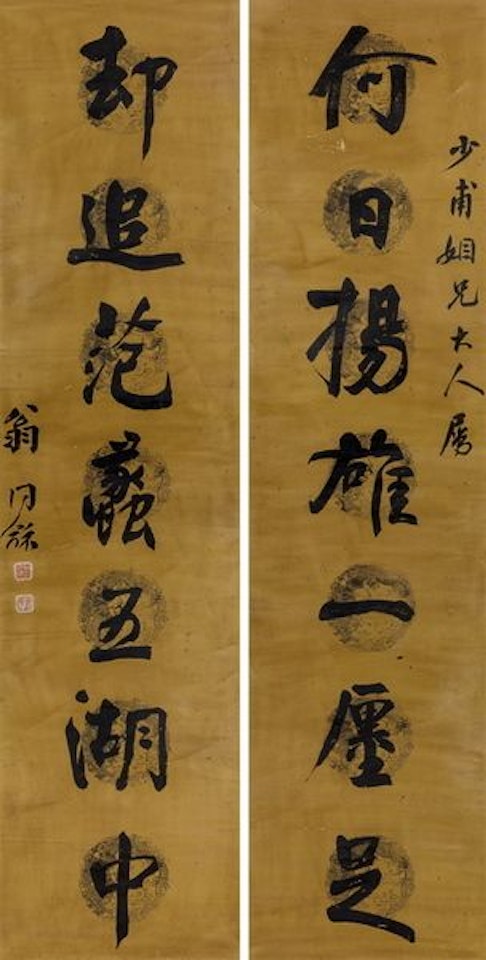 少甫姻兄大人属
何日揚雄一廛足
却追范蠡五湖中
翁同龢